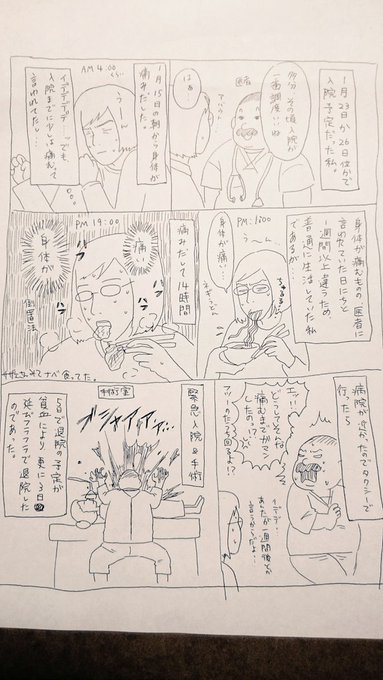 1月23日か
26日位かで
入院予定だった私。
医者
多分、その頃入院が
一番調度いいね
はぁ…
AM 4:00
くらい
1月15日の朝から身体が
痛みだした。
うーん
イデデデデ…でも、
入院までに少しは痛むって
言われてたし…
身体が痛むものの、医者に
言われていた日にちと
1週間以上違うため
普通に生活していた私
であるが…
PM:1:00
うーん
身体が痛い…
ちゅるる
PM 19:00
痛みだして14時間
痛い
身体が
倒置法
病院が近かったのでタクシーで
行ったら
エッ!!
どうしてそんな
痛むまでガマン
したの!?
フツーのたうち回るよ!?
イデデ…
あんたが一週間後とか
言うからだよ…
緊急入院&手術
手術室
5日で退院の予定が
貧血により更に3日
延びフラフラで退院した
のであった。